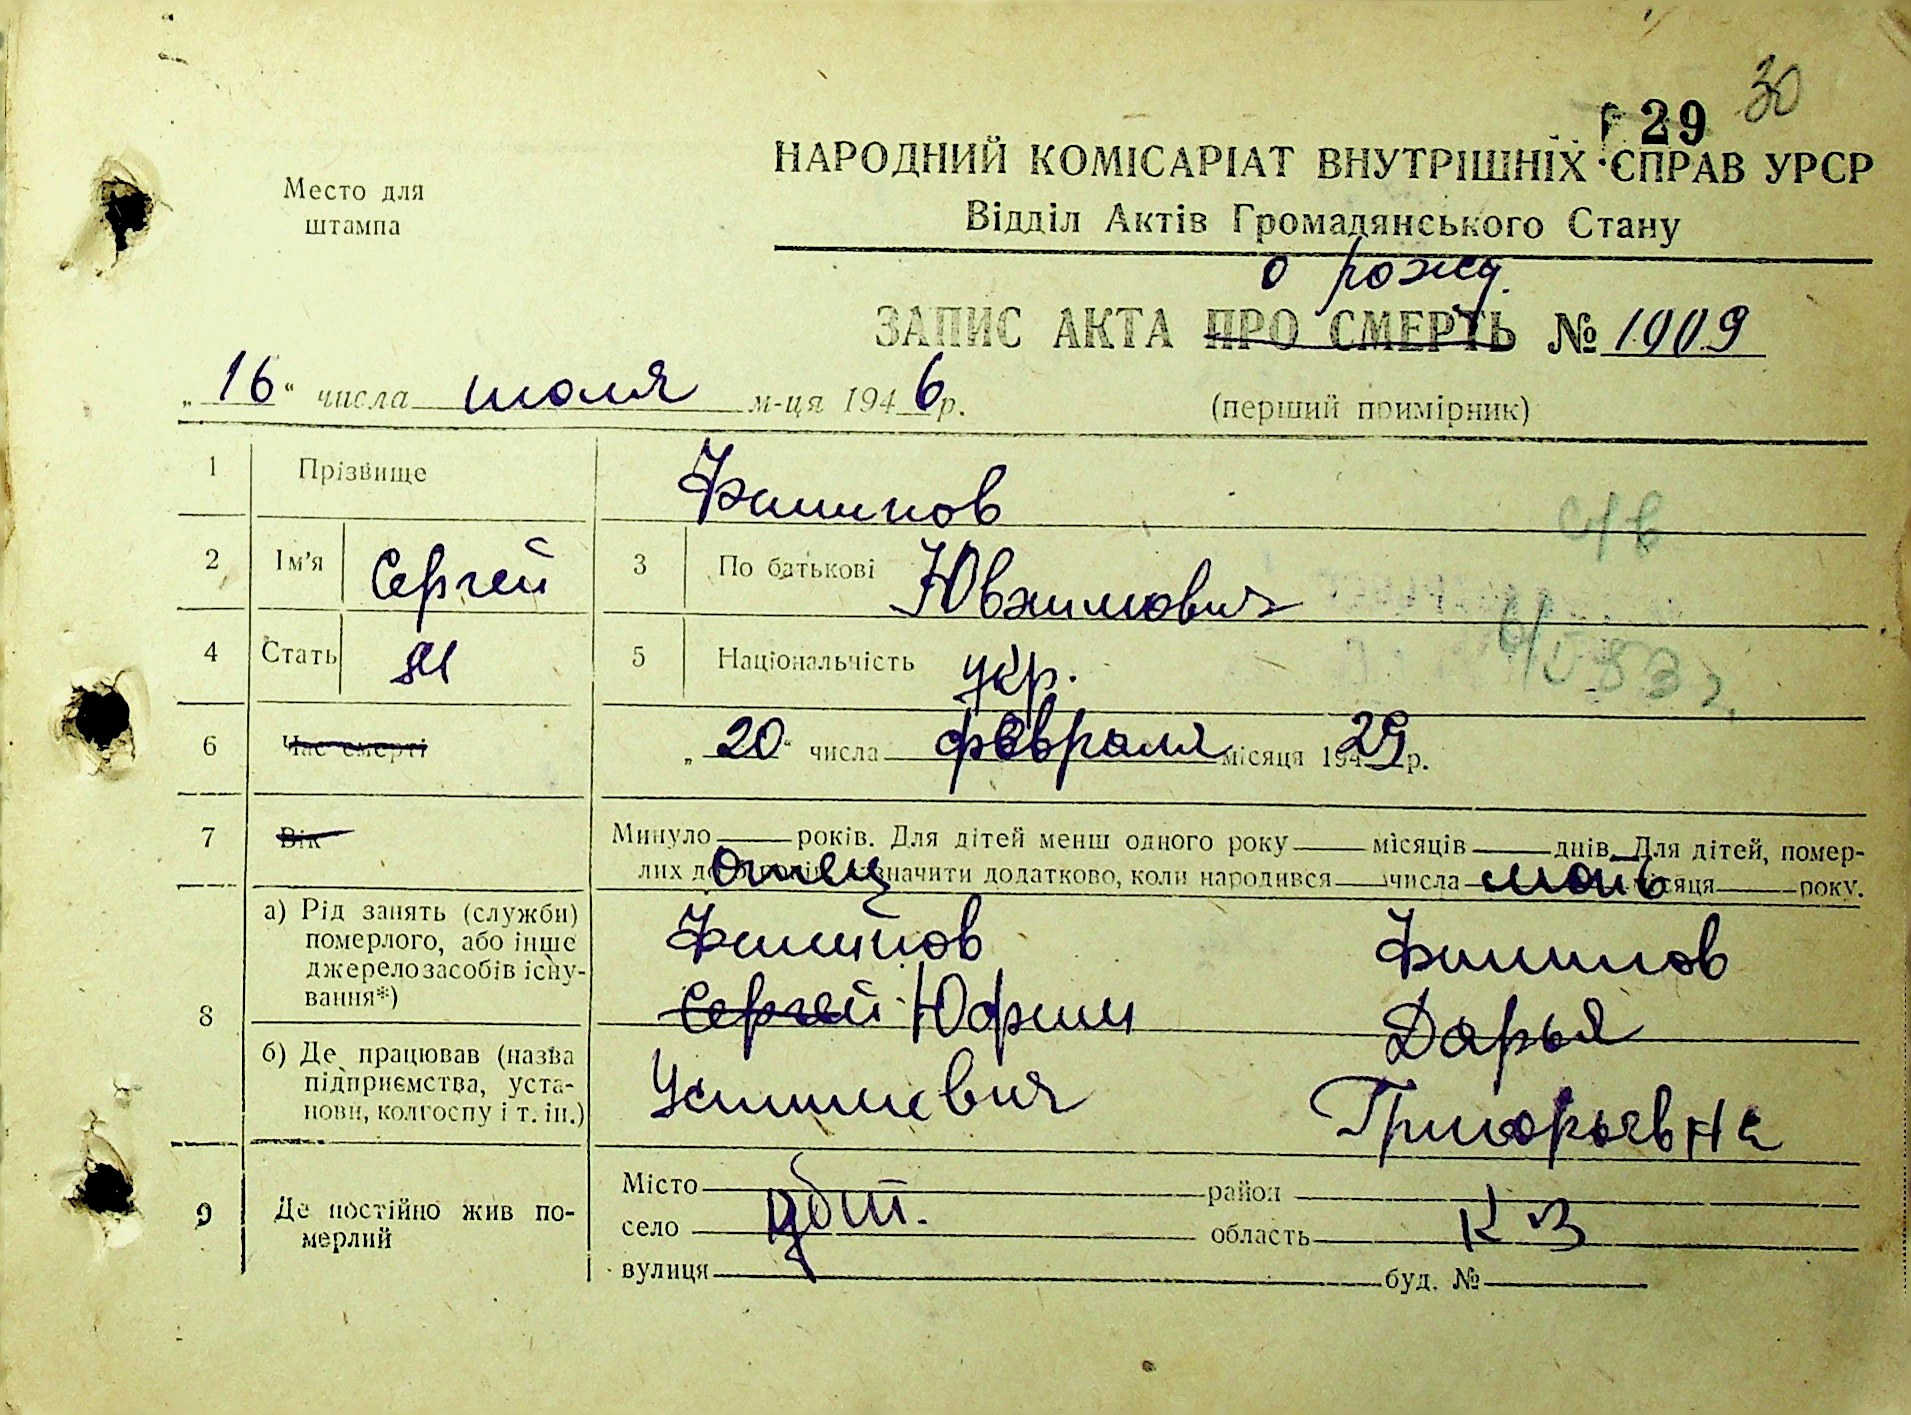 30
29
Место для
штампа
НАРОДНИЙ КОМІСАРІАТ ВНУТРІШНІХ СПРАВ УРСР
Відділ Актів Громадянського Стану
о рожд.
ЗАПИС АКТА ПРО СМЕРТЬ № 1909
„16“ числа июля м-ця 1946 р.
(перший примірник)
1 Прізвище Филипов
с/в
2 Ім'я Сергей 3 По батькові Ювхимович
4 Стать М 5 Національність укр.
6 Час смерті „20“ числа февраля місяця 1929 р.
7 Вік Минуло років. Для дітей менш одного року місяців днів. Для дітей, помер-
лих до значити додатково, коли народився числа місяця року.
отец мать
8 а) Рід занять (служби)
померлого, або інше
джерело засобів існу-
вання*)
Филипов Филипов
Сергей Юфим Дарья
б) Де працював (назва
підприємства, уста-
нови, колгоспу і т. ін.)
Григорьевна
9 Де постійно жив по-
мерлий
Місто район
село область
вулиця буд. №